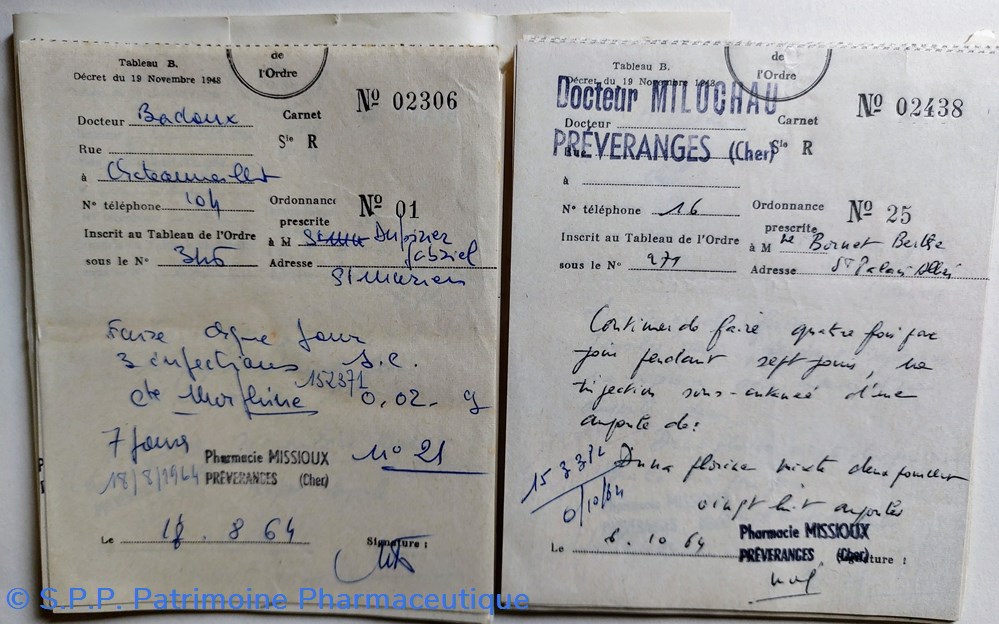 de
l'Ordre
Tableau B.
Décret du 19 Novembre 1948
Nº 02306
Docteur Badoux
Carnet
Rue
Sie R
à Chateaumeillant
Nº téléphone 104
Ordonnance
prescrite
Nº 01
Inscrit au Tableau de l'Ordre
à M Gabriel
sous le Nº 346
Adresse St Marien
Faire chque jour
3 injections S.C.
152371
de Morphine 0,02 g
7 jours
Nº 21
18/8/1964
Pharmacie MISSIOUX
PRÉVERANGES (Cher)
Le 18. 8 64
Signature :
de
l'Ordre
Tableau B.
Décret du 19 Novembre 1948
Docteur MILUCHAU
Nº 02438
Docteur
Carnet
PRÉVERANGES (Cher)
Rue
Sie R
à
Nº téléphone 16
Ordonnance
prescrite
Nº 25
Inscrit au Tableau de l'Ordre
à M me Bornet Berthe
sous le Nº 271
Adresse St Palais
Continuer de faire quatre fois par
jour pendant sept jours, une
injection sous-cutanée d'une
ampoule de :
153372
mixte deux pour cent
vingt huit ampoules
6/10/64
Pharmacie MISSIOUX
PRÉVERANGES (Cher)
Le 6. 10 64
Signature :
© S.P.P. Patrimoine Pharmaceutique